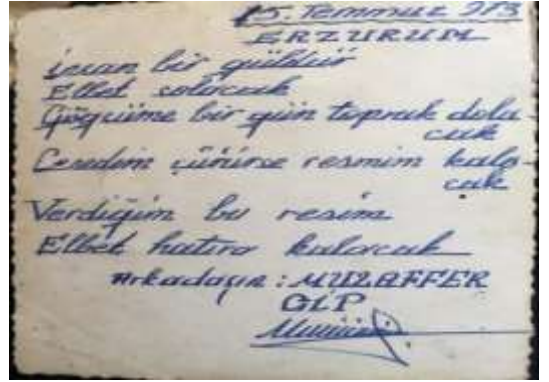 15. Temmuz 973
ERZURUM
insan bir güldür
Elbet solacak
Göğsüme bir gün toprak dola-
cak
Cesedim çürürse resmim kala-
cak
Verdiğim bu resim
Elbet hatıra kalacak
Arkadaşın: MUZAFFER